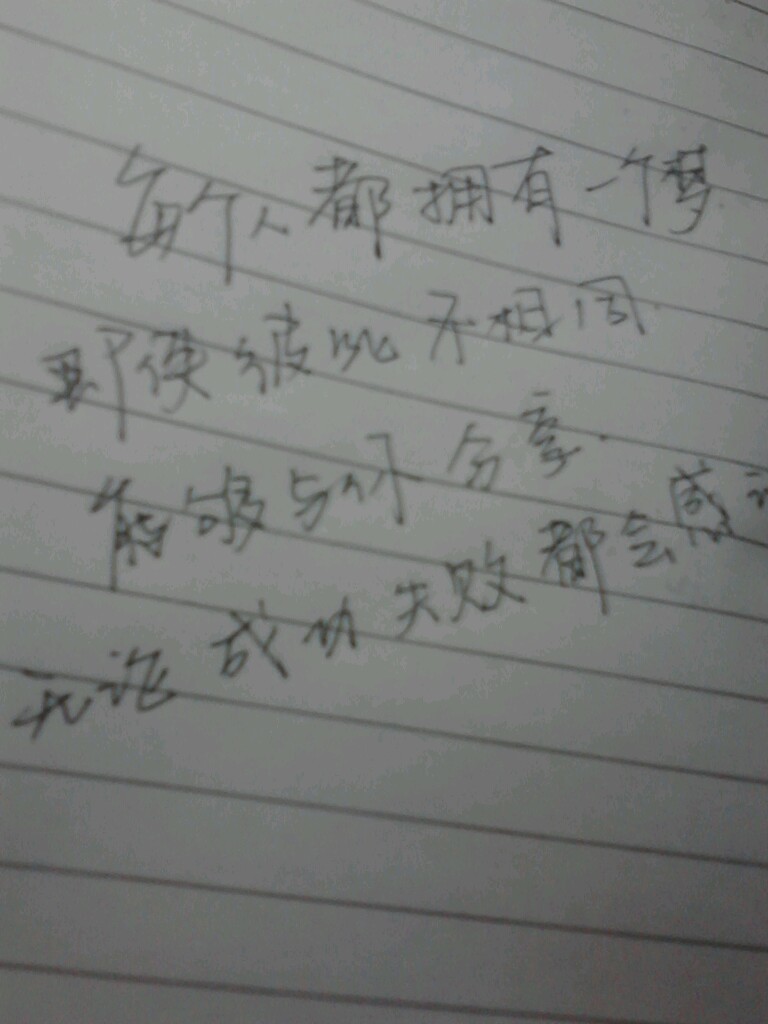 每个人都拥有一个梦
即使彼此不相同
能够与你分享
无论成功失败都会感